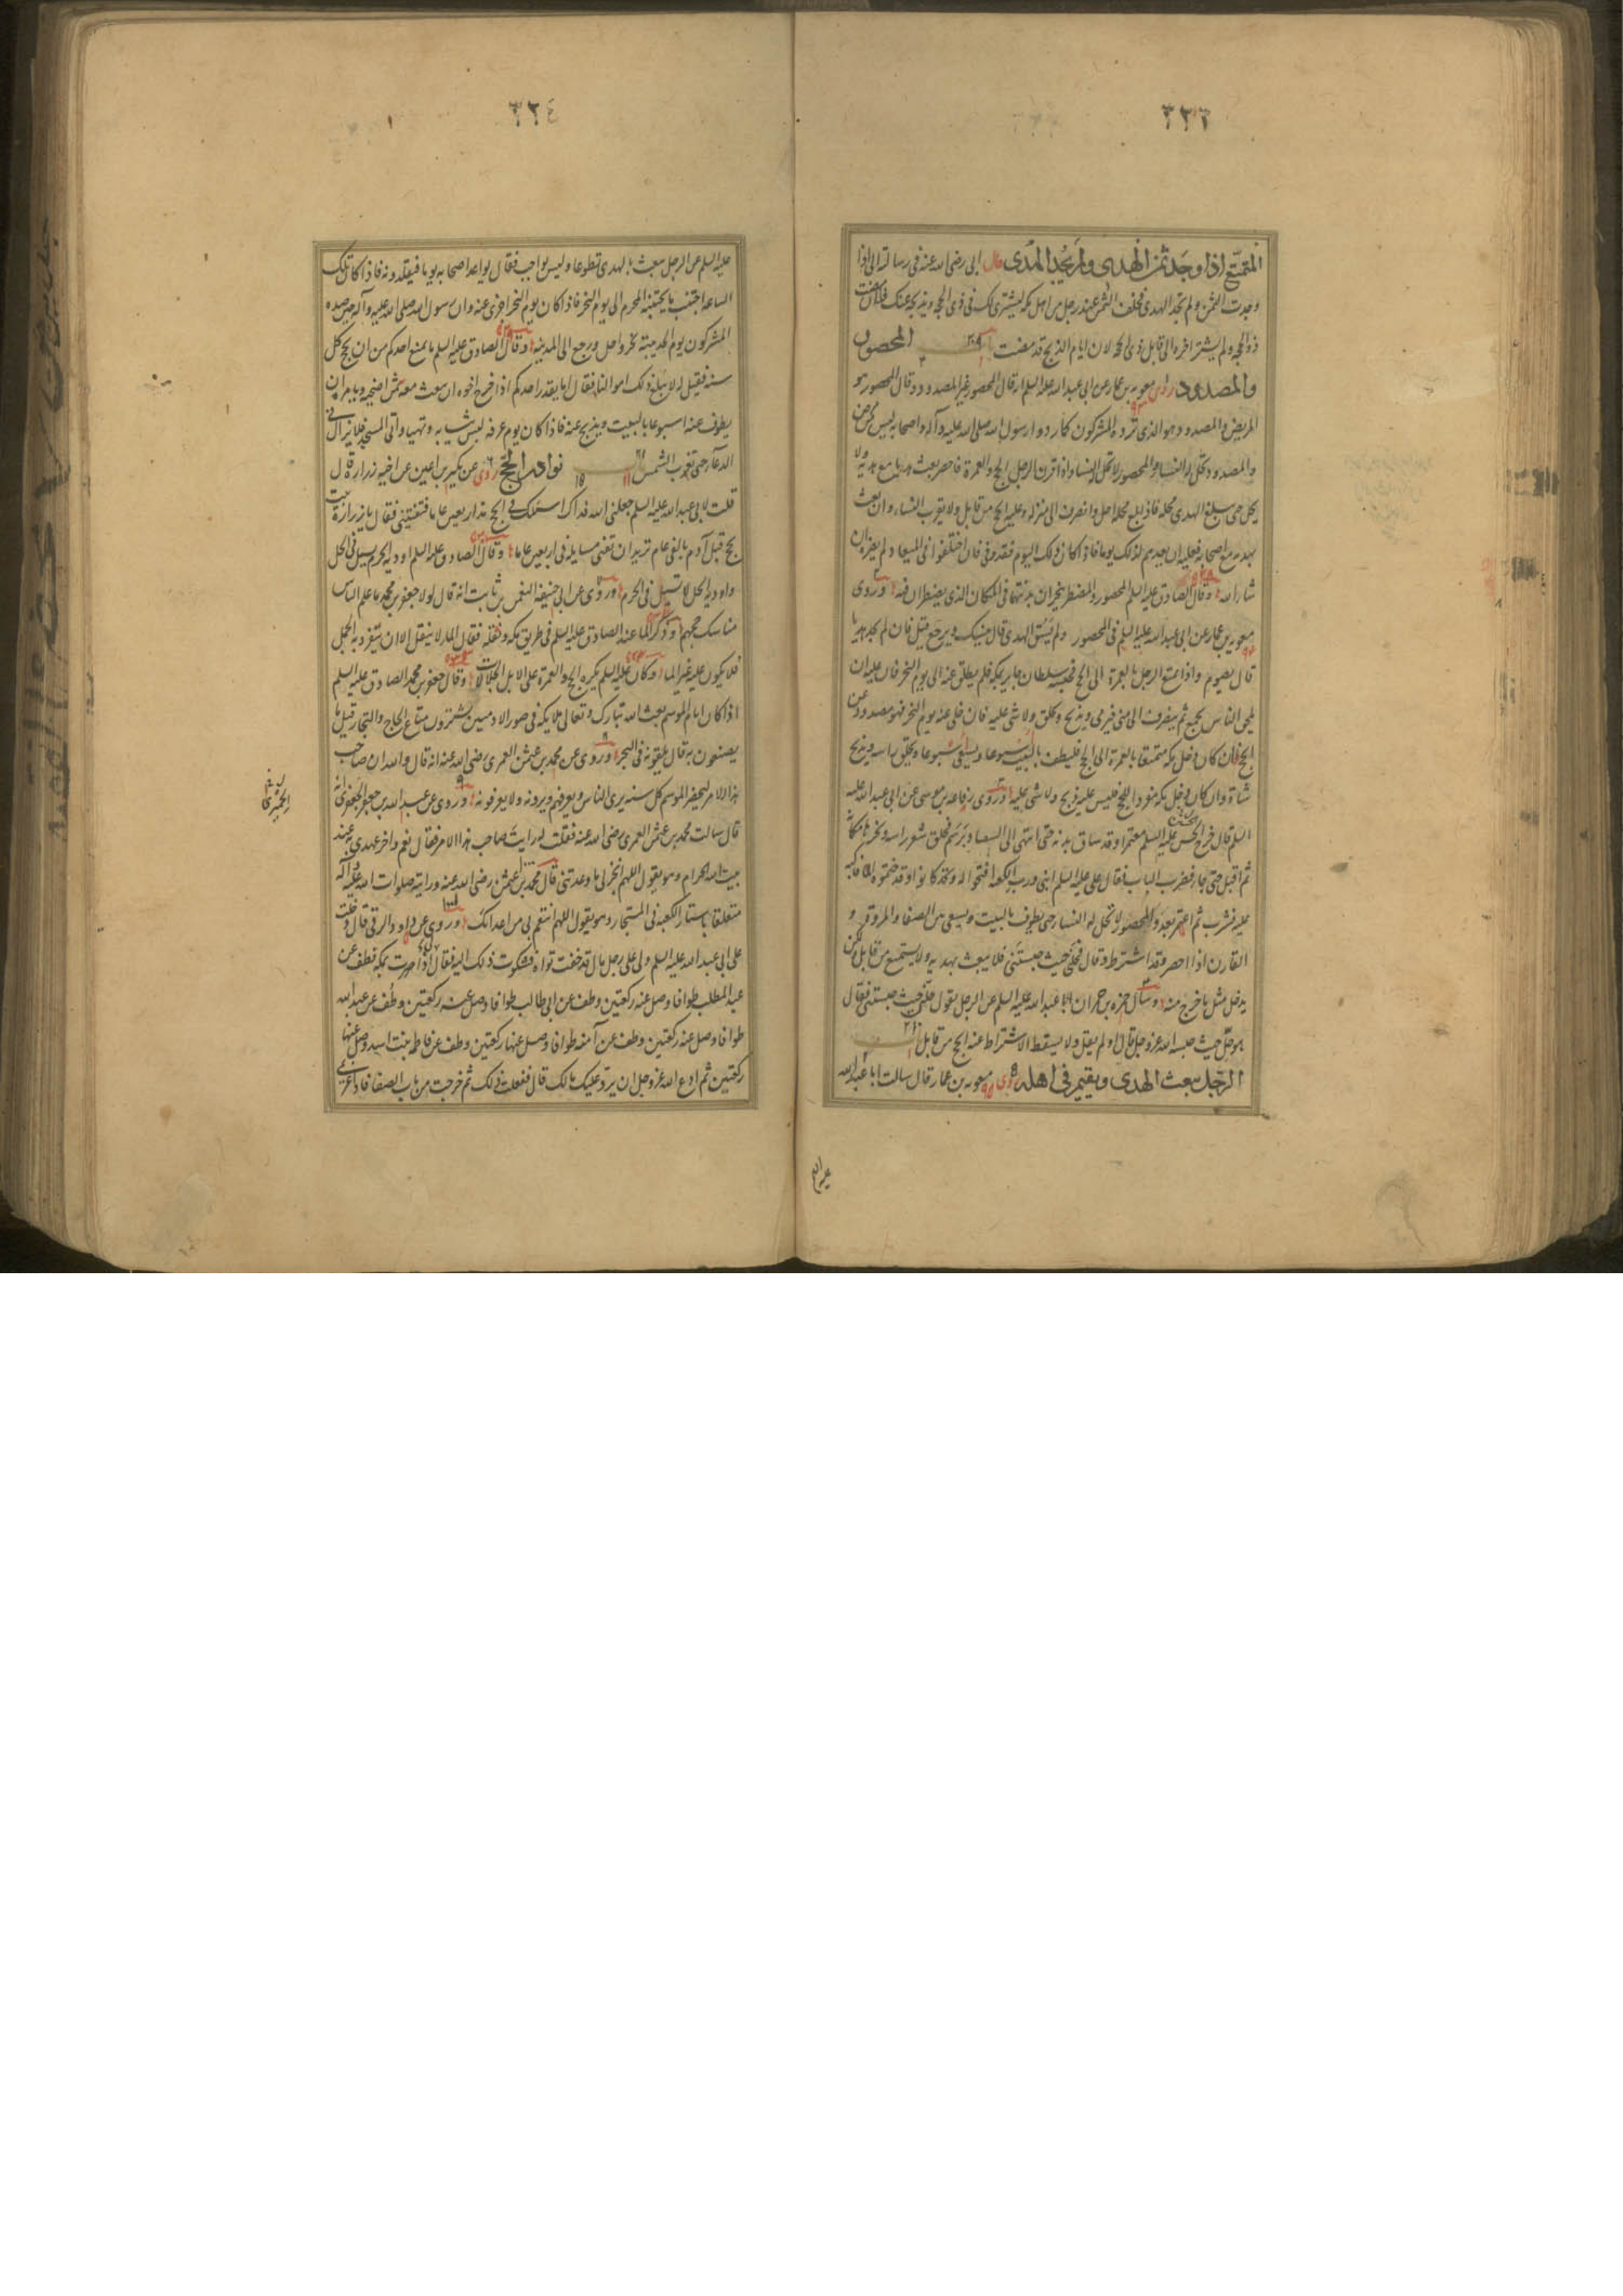 ٣٢٣
المتمتع اذا وجد ثمن الهدى ولم يجد الهدى قال ابى رضى الله عنه فى رسالته الى اذا
وجدت الثمن ولم تجد الهدى فخلف الثمن عند رجل من اهل مكه ليشترى لك فى ذى الحجه ويذبحه عنك فان مضت
ذو الحجه ولم يشتر اخره الى قابل ذى الحجه لان ايام الذبح قد مضت باب المحصور
والمصدود روى معويه بن عمار عن ابى عبد الله عليه السلم انه قال المحصور غير المصدود وقال المحصور هو
المريض والمصدود هو الذى ترده المشركون كما ردوا رسول الله صلى الله عليه وآله واصحابه ليس من مرض
والمصدود تحل له النساء والمحصور لا تحل له النساء واذا قرن الرجل الحج والعمرة فاحصر بعث هديا مع هديه ولا
يحل حتى يبلغ الهدى محله فاذا بلغ محله احل وانصرف الى منزله وعليه الحج من قابل ولا يقرب النساء وان بعث
بهديه مع اصحابه فعليه ان يعدهم لذلك يوما فاذا كان ذلك اليوم فقد وفى فان اختلفوا فى الميعاد لم يضره ان
شاء الله وقال الصادق عليه السلم المحصور والمضطر ينحران بدنتهما فى المكان الذى يضطران فيه وروى
معويه بن عمار عن ابى عبد الله عليه السلم فى المحصور ولم يسق الهدى قال ينسك ويرجع قيل فان لم يجد هديا
قال يصوم واذا تمتع الرجل بالعمرة الى الحج فحبسه سلطان جاير بمكه فلم يطلق عنه الى يوم النحر فان عليه ان
يلحق الناس بجمع ثم ينصرف الى منى فيرمى ويذبح ويحلق ولا شى عليه فان خلى عنه يوم النحر فهو مصدود عن
الحج فان كان دخل مكه متمتعا بالعمرة الى الحج فليطف بالبيت اسبوعا ويسعى اسبوعا ويحلق راسه ويذبح
شاة وان كان دخل مكه مفردا للحج فليس عليه ذبح ولا شى عليه وروى رفاعه بن موسى عن ابى عبد الله عليه
السلم قال خرج الحسين عليه السلم معتمرا وقد ساق بدنه حتى انتهى الى السقيا فبرسم فحلق شعر راسه ونحرها مكانه
ثم اقبل حتى جاء فضرب الباب فقال على عليه السلم ابنى ورب الكعبه افتحوا له وكانوا قد حموه الماء فاكب
عليه فشرب ثم اعتمر بعد والمحصور لا تحل له النساء حتى يطوف بالبيت ويسعى بين الصفا والمروة و
القارن اذا احصر وقد اشترط وقال فحلنى حيث حبستنى فلا يبعث بهديه ولا يستمتع من قابل لكن
يدخل مثل ما خرج منه وسال حمزه بن حمران ابا عبد الله عليه السلم عن الرجل يقول حلنى حيث حبستنى فقال
هو حل حيث حبسه الله عز وجل قال او لم يقل ولا يسقط الاشتراط عنه الحج من قابل باب
الرجل يبعث الهدى ويقيم فى اهله روى معويه بن عمار قال سالت ابا عبد الله
عليه السلم
٣٢٤
عليه السلم عن الرجل يبعث بالهدى تطوعا وليس بواجب فقال يواعد اصحابه يوما فيقلدونه فاذا كان تلك
الساعه اجتنب ما يجتنبه المحرم الى يوم النحر فاذا كان يوم النحر اجزى عنه وان رسول الله صلى الله عليه وآله حين صده
المشركون يوم الحديبيه نحر واحل ورجع الى المدينه وقال الصادق عليه السلم ما يمنع احدكم من ان يحج كل
سنه فقيل له لا يبلغ ذلك اموالنا فقال اما يقدر احدكم اذا خرج اخوه ان يبعث معه ثمن اضحيه ويامره ان
يطوف عنه اسبوعا بالبيت ويذبح عنه فاذا كان يوم عرفه لبس ثيابه وتهيا واتى المسجد فلا يزال فى
الدعآء حتى تغرب الشمس باب نوادر الحج روى عن بكير بن اعين عن اخيه زرارة قال
قلت لابى عبد الله عليه السلم جعلنى الله فداك اسئلك فى الحج منذ اربعين عاما فتفتينى فقال يا زرارة بيت
يحج قبل آدم بالفى عام تريد ان تفنى مسايله فى اربعين عاما وقال الصادق عليه السلم اوديه الحرم تسيل فى الحل
واوديه الحل لا تسيل فى الحرم وروى عن ابى حنيفه النعمن بن ثابت انه قال لولا جعفر بن محمد ما علم الناس
مناسك حجهم وذكر الماء عند الصادق عليه السلم فى طريق مكه وثقله فقال الماء لا يثقل الا ان ينفرد به الجمل
فلا يكون عليه غير الماء وكان عليه السلم يكره الحج والعمرة على الابل الجلالات وقال جعفر بن محمد الصادق عليه السلم
اذا كان ايام الموسم بعث الله تبارك وتعالى ملايكه فى صور الادميين يشترون متاع الحاج والتجار قيل ما
يصنعون به قال يلقونه فى البحر وروى عن محمد بن عثمن العمرى رضى الله عنه انه قال والله ان صاحب
هذا الامر ليحضر الموسم كل سنه يرى الناس ويعرفهم ويرونه ولا يعرفونه وروى عن عبد الله بن جعفر الحميرى انه
قال سالت محمد بن عثمن العمرى رضى الله عنه فقلت له رايت صاحب هذا الامر فقال نعم واخر عهدى به عند
بيت الله الحرام وهو يقول اللهم انجز لى ما وعدتنى قال محمد بن عثمن رضى الله عنه ورايته صلوات الله عليه وآله
متعلقا باستار الكعبه فى المستجار وهو يقول اللهم انتقم بى من اعدائك وروى عن داود الرقى قال دخلت
على ابى عبد الله عليه السلم ولى على رجل مال قد خفت تواه فشكوت ذلك اليه فقال اذا صرت بمكه فطف عن
عبد المطلب طوافا وصل عنه ركعتين وطف عن ابى طالب طوافا وصل عنه ركعتين وطف عن عبد الله
طوافا وصل عنه ركعتين وطف عن آمنه طوافا وصل عنها ركعتين وطف عن فاطمه بنت اسد وصل عنها
ركعتين ثم ادع الله عز وجل ان يرد عليك مالك قال ففعلت ذلك ثم خرجت من باب الصفا فاذا غريمى
الحميرى